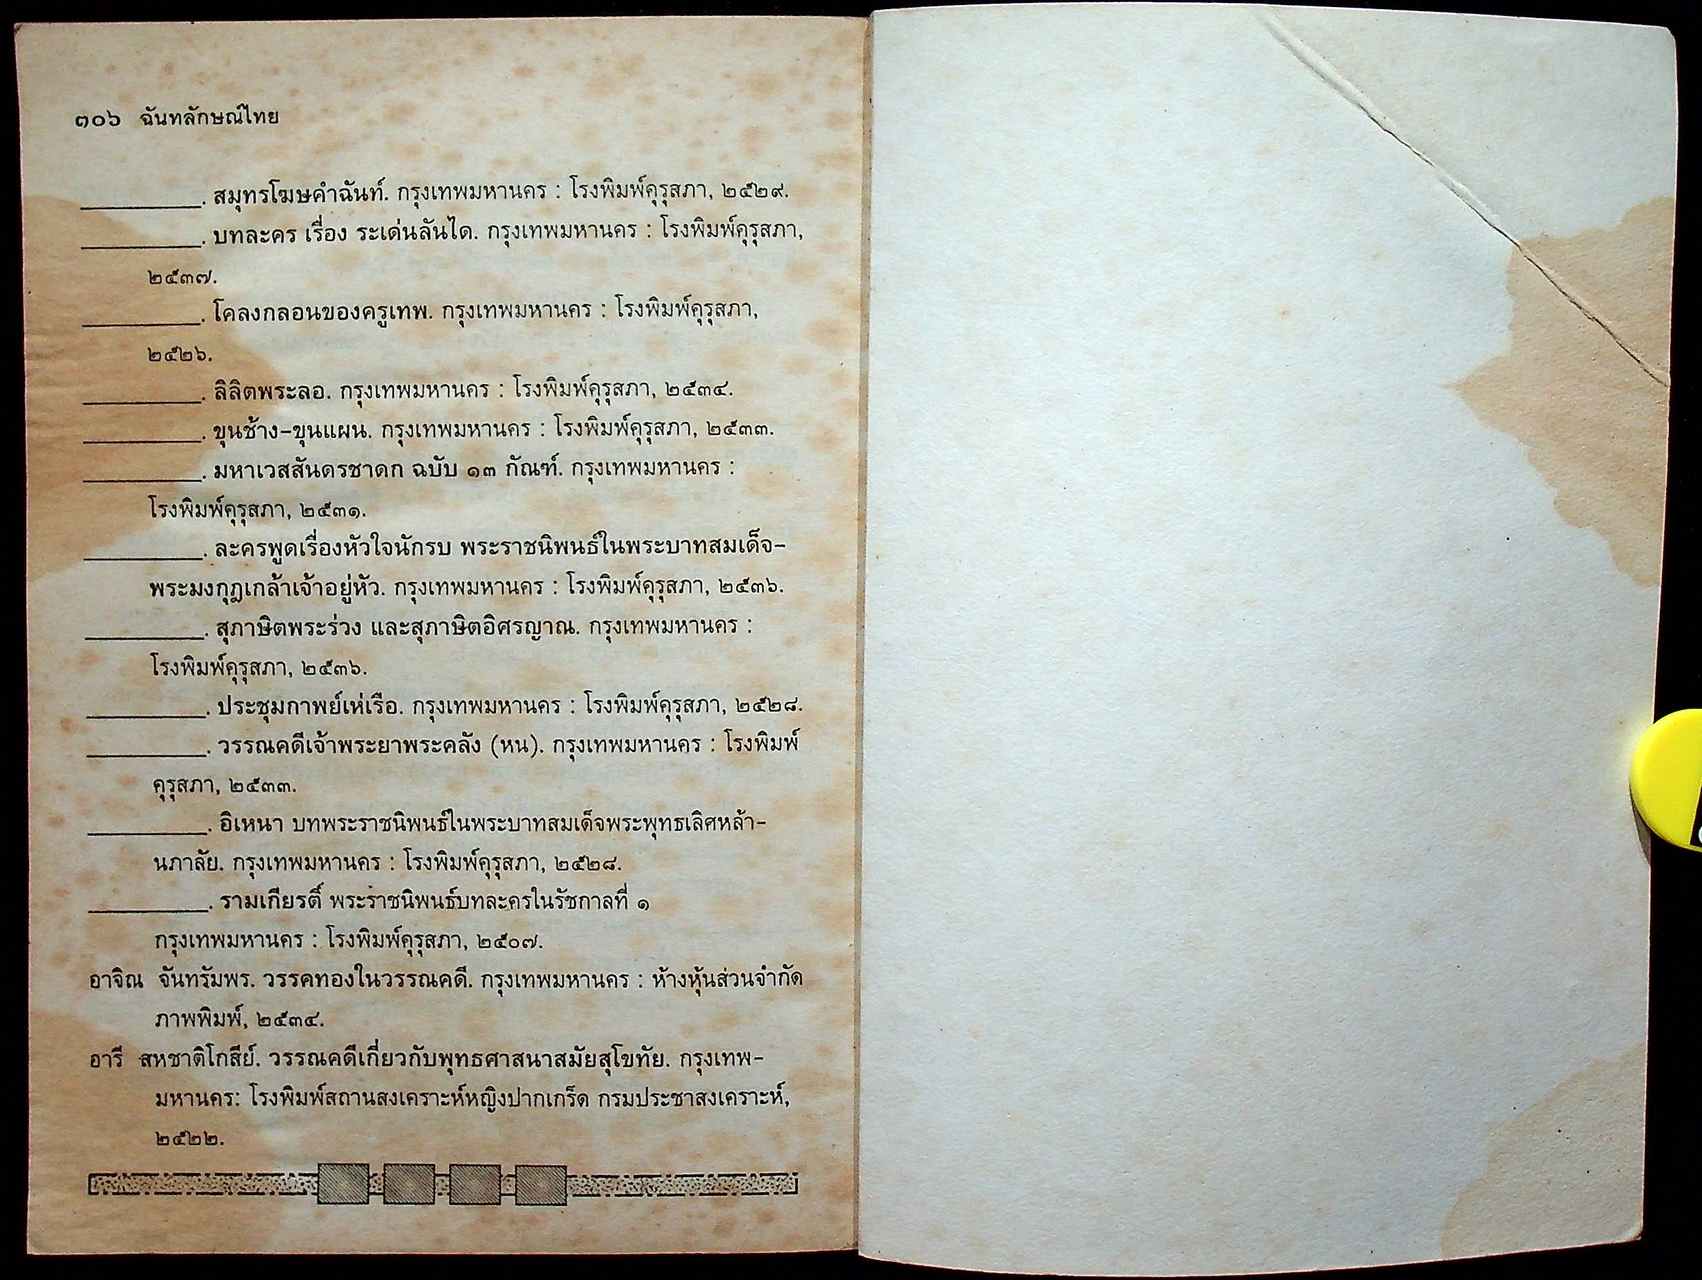 ๓๐๖ ฉันทลักษณ์ไทย
__________. สมุทรโฆษคำฉันท์. กรุงเทพมหานคร : โรงพิมพ์คุรุสภา, ๒๕๒๙.
__________. บทละคร เรื่อง ระเด่นลันได. กรุงเทพมหานคร : โรงพิมพ์คุรุสภา,
๒๕๓๗.
__________. โคลงกลอนของครูเทพ. กรุงเทพมหานคร : โรงพิมพ์คุรุสภา,
๒๕๒๖.
__________. ลิลิตพระลอ. กรุงเทพมหานคร : โรงพิมพ์คุรุสภา, ๒๕๓๔.
__________. ขุนช้าง-ขุนแผน. กรุงเทพมหานคร : โรงพิมพ์คุรุสภา, ๒๕๓๓.
__________. มหาเวสสันดรชาดก ฉบับ ๑๓ กัณฑ์. กรุงเทพมหานคร :
โรงพิมพ์คุรุสภา, ๒๕๓๑.
__________. ละครพูดเรื่องหัวใจนักรบ พระราชนิพนธ์ในพระบาทสมเด็จ-
พระมงกุฎเกล้าเจ้าอยู่หัว. กรุงเทพมหานคร : โรงพิมพ์คุรุสภา, ๒๕๓๖.
__________. สุภาษิตพระร่วง และสุภาษิตอิศรญาณ. กรุงเทพมหานคร :
โรงพิมพ์คุรุสภา, ๒๕๓๖.
__________. ประชุมกาพย์เห่เรือ. กรุงเทพมหานคร : โรงพิมพ์คุรุสภา, ๒๕๒๘.
__________. วรรณคดีเจ้าพระยาพระคลัง (หน). กรุงเทพมหานคร : โรงพิมพ์
คุรุสภา, ๒๕๓๓.
__________. อิเหนา บทพระราชนิพนธ์ในพระบาทสมเด็จพระพุทธเลิศหล้า-
นภาลัย. กรุงเทพมหานคร : โรงพิมพ์คุรุสภา, ๒๕๒๘.
__________. รามเกียรติ์ พระราชนิพนธ์บทละครในรัชกาลที่ ๑
กรุงเทพมหานคร : โรงพิมพ์คุรุสภา, ๒๕๐๗.
อาจิณ จันทรัมพร. วรรคทองในวรรณคดี. กรุงเทพมหานคร : ห้างหุ้นส่วนจำกัด
ภาพพิมพ์, ๒๕๓๔.
อารี สหชาติโกสีย์. วรรณคดีเกี่ยวกับพุทธศาสนาสมัยสุโขทัย. กรุงเทพ-
มหานคร: โรงพิมพ์สถานสงเคราะห์หญิงปากเกร็ด กรมประชาสงเคราะห์,
๒๕๒๒.